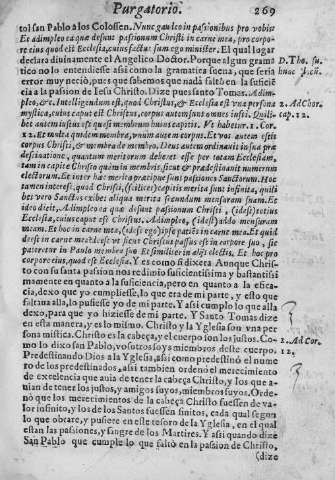 Purgatorio. 269
tol san Pablo a los Colossen. Nunc gaudeo in passionibus pro vobis
Et adimpleo ea quæ desunt passionum Christi in carne mea, pro corpo
re eius quod est Ecclesia, cuius factus sum ego minister. El qual logar
declara diuinamente el Angelico Doctor. Porque algun grama
tico no lo entendiesse assi como la gramatica suena, que seria
error muy necio, pues que sabemos que nada faltò en la suficié
cia a la passion de Iesu Christo. Dize pues santo Tomas. Adim-
pleo, &c. Intelligendum est, quod Christus, & Ecclesia est vna persona
mystica, cuius caput est Christus, corpus autem sunt omnes iusti. Quili
bet autem iustus est quasi membrum huius capitis. Vt habetur 1. Cor.
12. Et multa quidem membra, vnum autem corpus. Et vos autem estis
corpus Christi, & membra de membro. Deus autem ordinauit in sua præ
destinatione, quantum meritorum deberet esse per totam Ecclesiam,
tam in capite Christo quàm in membris, sicut & prædestinauit numerum
electorum. Et inter hæc merita præcipuè sunt passiones Sanctorum. Hoc
tamen interest, quod Christi, (scilicet) capitis merita sunt infinita, quili
bet vero Sanctus exibet aliqua merita secundum mensuram suam. Et
ideo dicit, Adimpleo ea quæ desunt passionum Christi, (idest) totius
Ecclesiæ, cuius caput est Christus. Adimpleo, (idest) addo mensuram
meam. Et hoc in carne mea, (idest ego) ipse patiens in carne mea. Et quid
deest in carne mea? deest vt sicut Christus passus est in corpore suo, sic
pateretur in Paulo membro suo & similiter in alijs electis, Et hoc pro
corpore eius, quod est Ecclesia. Y es como si dixera. Aunque Chris-
to con su santa passion nos redimio suficientissima y bastantissi
mamente en quanto a la suficiencia, pero en quanto a la efica-
cia, dexo que yo cumpliesse, lo que era de mi parte, y esto que
faltaua alla, lo pusiesse yo de mi parte. Y assi cumplo lo que alla
dexo, para que yo hiziesse de mi parte. Y Santo Tomas dize
en esta manera, y es lo mismo. Christo y la Yglesia son vna per
sona mistica. Christo es la cabeça, y el cuerpo son los justos. Co-
mo lo dixo san Pablo, vosotros soys miembros deste cuerpo.
Predestinando Dios a la Yglesia, assi como predestinó el nume
ro de los predestinados, assi tambien ordenò el merecimiento
de excelencia que auia de tener la cabeça Christo, y los que a-
uian de tener los justos, y amigos suyos, miembros suyos. Orde-
nò que los merecimientos de la cabeça Christo fuessen de va-
lor infinito, y los de los Santos fuessen finitos, cada qual segun
lo que obrare, y pusiere en este tesoro de la Yglesia, en el qual
estan las passiones, y sangre de los Martires. Y assi quando dize
San Pablo que cumple lo que faltò en la passion de Christo,
(dize
D. Tho. su.
hunc locū.
Ad Cor.
cap. 12.
2. Ad Cor.
12.